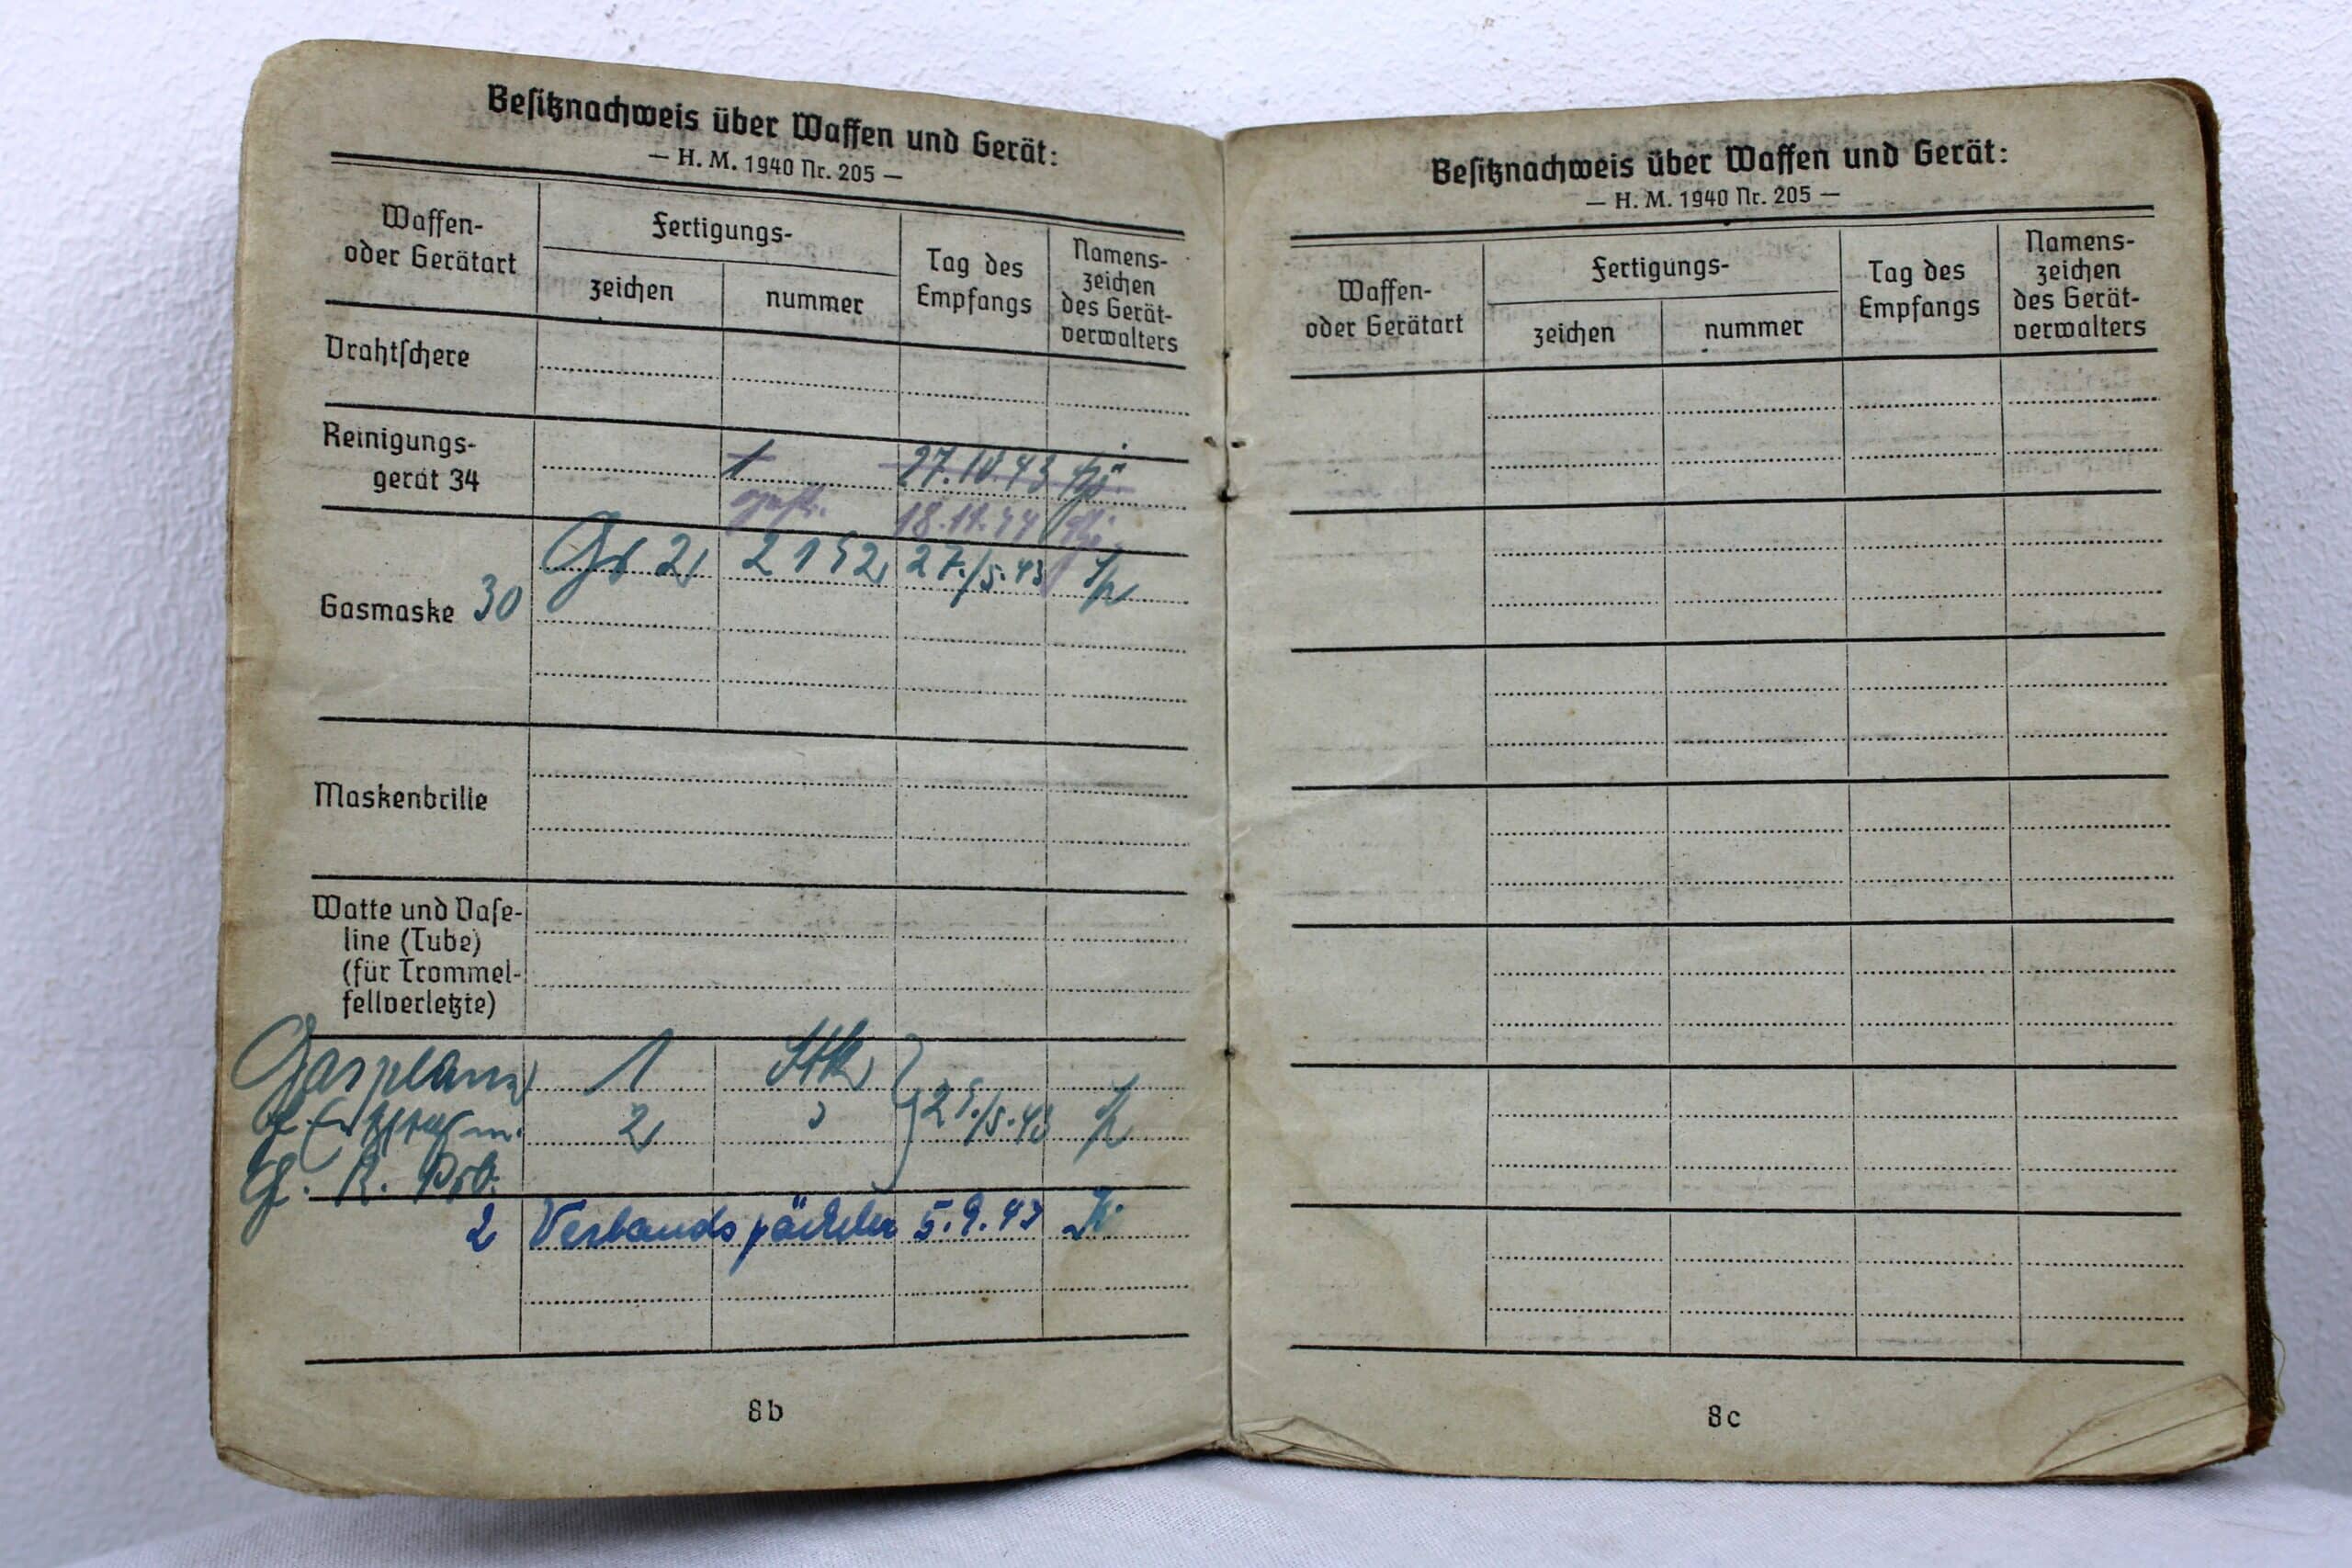 Besitznachweis über Waffen und Gerät:
— H. M. 1940 Nr. 205 —
Waffen-
oder Gerätart
Fertigungs-
zeichen
nummer
Tag des
Empfangs
Namens-
zeichen
des Gerät-
verwalters
Drahtschere
Reinigungs-
gerät 34
1 27.10.43
18.11.44
Gasmaske 30
2152 27./5.43
Maskenbrille
Watte und Vase-
line (Tube)
(für Trommel-
fellverletzte)
Gasplane 1 Stk
2 25./5.43
2 Verbandspäckchen 5.9.43
8b
Besitznachweis über Waffen und Gerät:
— H. M. 1940 Nr. 205 —
Waffen-
oder Gerätart
Fertigungs-
zeichen
nummer
Tag des
Empfangs
Namens-
zeichen
des Gerät-
verwalters
8c